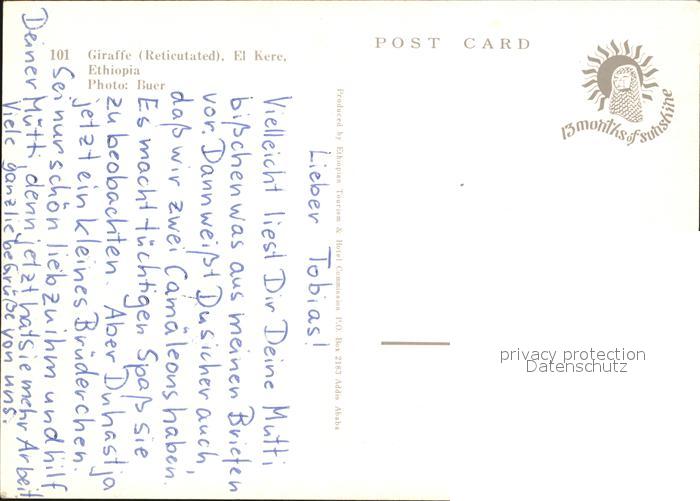 POST CARD
13 months of sunshine
101 Giraffe (Reticutated), El Kere,
Ethiopia
Photo: Buer
Produced by Ethiopian Tourism & Hotel Commission P.O. Box 2183 Addis Ababa
Lieber Tobias!
Vielleicht liest Dir Deine Mutti
bißchen was aus meinen Briefen
vor. Dann weißt Du sicher auch,
daß wir zwei Camäleons haben.
Es macht tüchtigen Spaß sie
zu beobachten. Aber Du hast ja
jetzt ein kleines Brüderchen.
Sei nur schön lieb zu ihm und hilf
Deiner Mutti, denn jetzt hat sie mehr Arbeit
Viele ganz liebe Grüße von uns.
privacy protection
Datenschutz